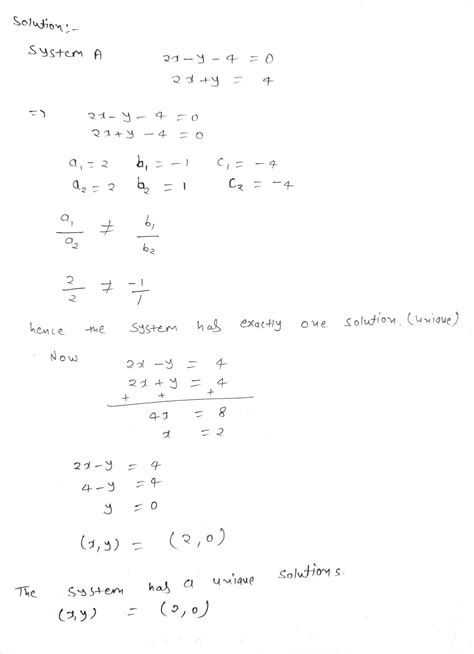 Solution:-
System A 2x - y - 4 = 0
2x + y = 4
=> 2x - y - 4 = 0
2x + y - 4 = 0
a₁ = 2 b₁ = -1 c₁ = -4
a₂ = 2 b₂ = 1 C₂ = -4
a₁/a₂ ≠ b₁/b₂
2/2 ≠ -1/1
hence the system has exactly one solution. (unique)
Now 2x - y = 4
2x + y = 4
+ + +
4x = 8
x = 2
2x - y = 4
4 - y = 4
y = 0
(x, y) = (2, 0)
The system has a unique solutions.
(x, y) = (2, 0)